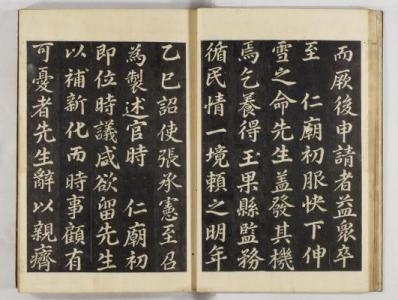 而厥後申請者益衆卒
至 仁廟初服快下伸
雪之命先生盖發其機
焉乞養得玉果縣監務
循民情一境賴之明年
乙巳詔使張承憲至召
為製述官時 仁廟初
即位時議咸欲留先生
以補新化而時事顧有
可憂者先生辭以親癠